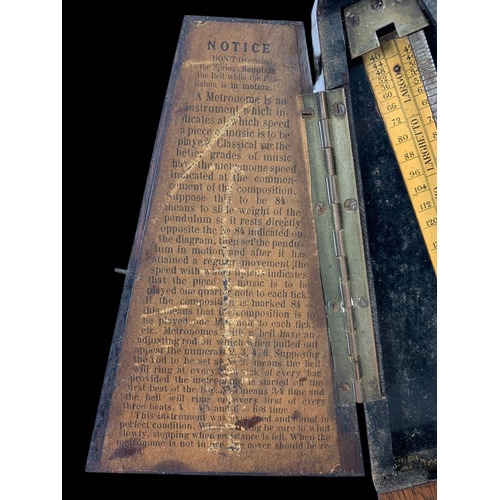 NOTICE
DON'T Overwind
the Spring. Regulate
the Bell while the Pen-
dulum is in motion.
A Metronome is an
instrument which in-
dicates at which speed
a piece of music is to be
played. Classical or the
better grades of music
have the metronome speed
indicated at the commen-
cement of the composition.
Suppose this to be 84
means to slide weight of the
pendulum so it rests directly
opposite the No 84 indicated on
the diagram, then set the pendu-
lum in motion and after it has
attained a regular movement (the
speed with which it ticks indicates
that the piece of music is to be
played one quarter note to each tick.
If the composition is marked 84
this means that the composition is to
be played one half note to each tick,
etc. Metronomes with a bell have an
adjusting rod on which when pulled out
appear the numerals 2, 3, 4, 6. Supposing
the rod to be set at No 2. means the bell
will ring at every tick of every bar
provided the metronome is started on the
first beat of the bar. 3 means 3/4 time and
the bell will ring on every first of every
three beats. 4 and 6/8 time.
This instrument was and found in
perfect condition. When be sure to wind
slowly, stopping when resistance is felt. When the
metronome is not in use cover should be re-
40
44
48
52
56
60
63
66
72
76
80
84
88
92
96
100
104
108
112
120
LARGO
LARGHETTO